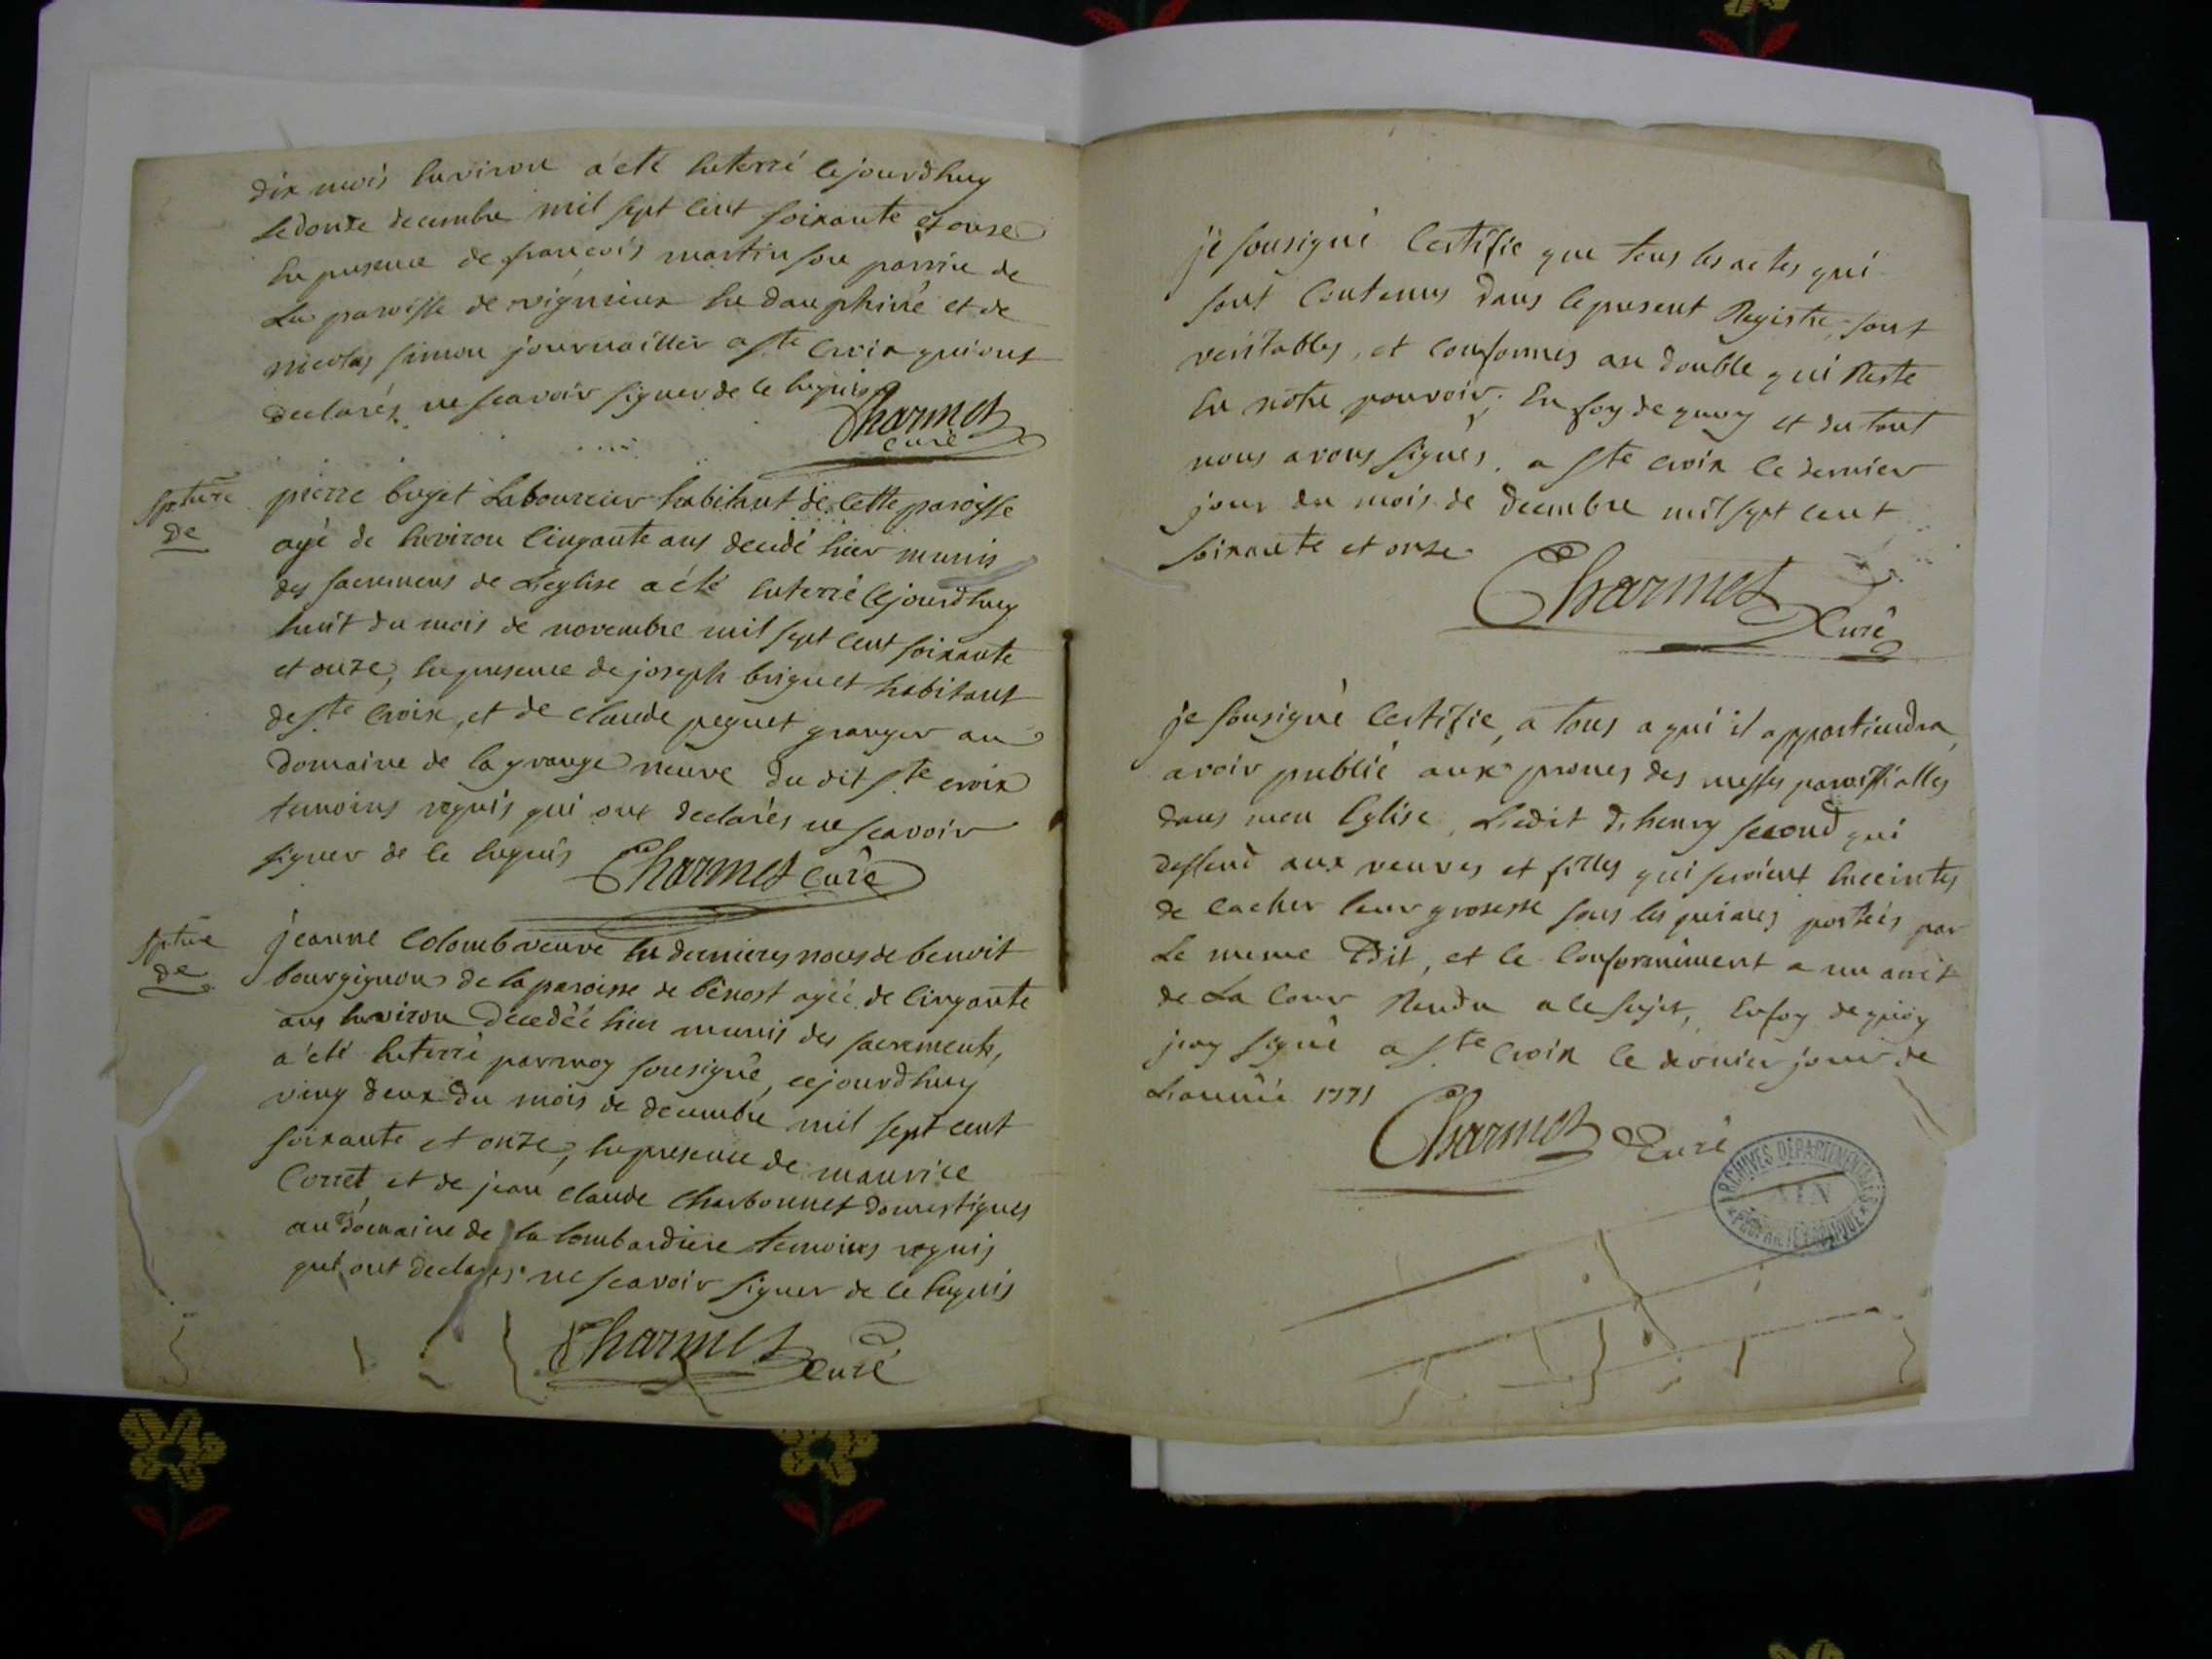 dix mois Environ a été Enterré cejourdhuy
le douze decembre mil sept cent soixante et onze
En presence de françois martin son parrin de
La paroisse de vignieux En dauphiné et de
nicolas simon journaillier a Ste Croix qui ont
declarés ne scavoir signer de ce Enquis
Charmet
curé
Spture
de
pierre buget Laboureur habitant de cette paroisse
agé de Environ cinqante ans decedé hier munis
des sacremens de L'eglise a été Enterré cejourdhuy
huit du mois de novembre mil sept cent soixante
et onze, En presence de joseph briguet habitant
de Ste Croix, et de claude peguet granger au
domaine de la grange neuve du dit Ste croix
temoins requis qui ont declarés ne scavoir
signer de ce Enquis Charmet Curé
Spture
de
jeanne Colomb veuve En dernieres noces de benoit
bourgignon de la paroisse de bênost agéé de cinqante
ans Environ décedéé hier munis des sacrements,
a été Enterré par moy sousigné, cejourdhuy
ving deux du mois de decembre mil sept cent
soixante et onze, En presence de maurice
Corret, et de jean claude Charbonnet domestiques
au domaine de la lombardiere temoins requis
qui ont declarés ne scavoir signer de ce Enquis
Charmet Curé
je sousigné Certifie que tous les actes qui
sont Contenus dans le present Registre, sont
veritables, et conformes au double qui Reste
En notre pouvoir, En foy de quoy et du tout
nous avons signés, a Ste croix le dernier
jour du mois de decembre mil sept cent
soixante et onze
Charmet Curé
je sousigné Certifie, a tous a qui il appartiendra,
avoir publié aux prones des messes paroissialles
dans mon Eglise, L'edit d'henry second qui
deffend aux veuves et filles qui seroient Enceintes
de cacher leur grosesse sous les peines portéés par
Le meme Edit, et ce Conformément a un arrét
de La Cour Rendu a ce sujet, En foy de quoy
jay signé a Ste Croix le dernier jour de
L'année 1771
Charmet Curé
ARCHIVES DÉPARTEMENTALES
AIN
PROPRIÉTÉ PUBLIQUE